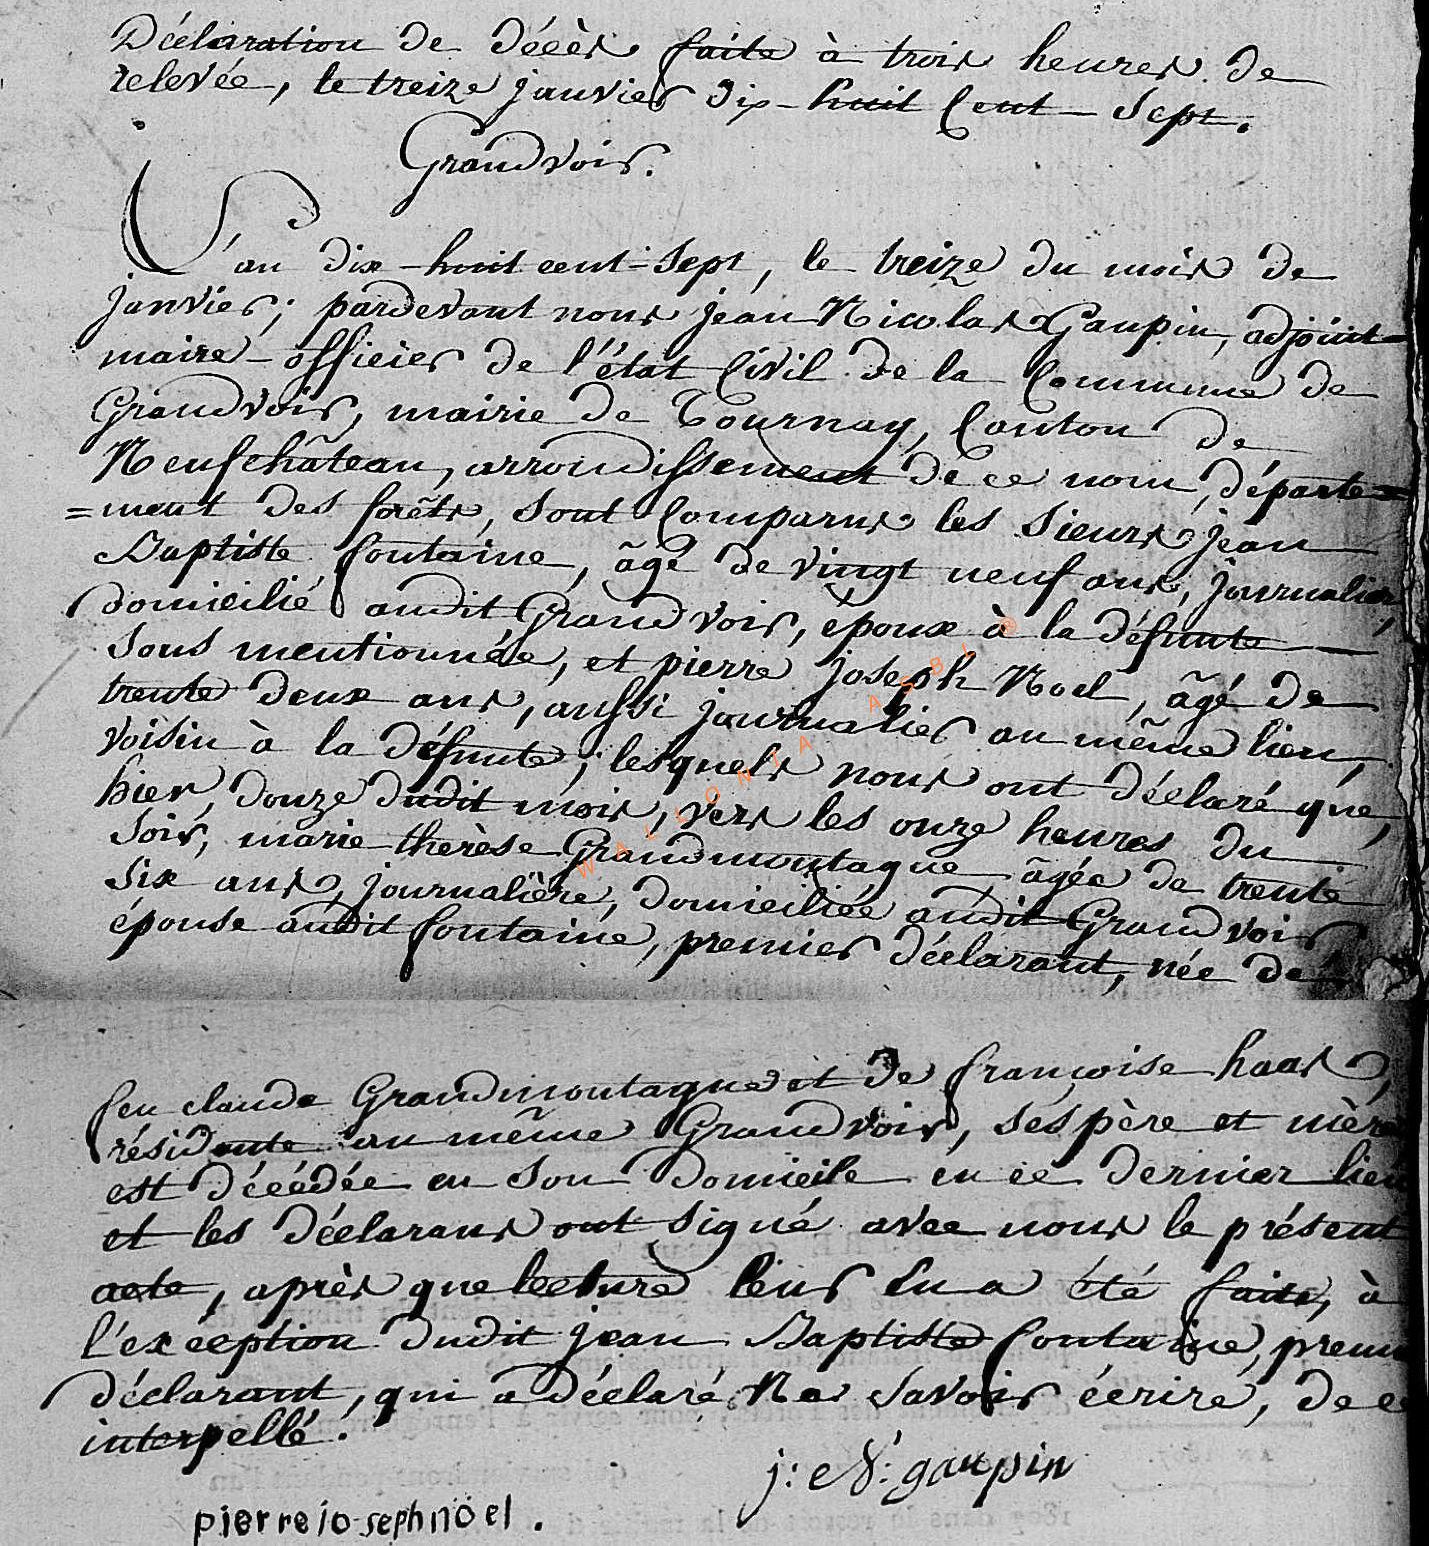 Déclaration de décès faite à trois heures de
relevée, le treize janvier dix-huit Cent-Sept.
Grandvoir.
L'an dix-huit cent-sept, le treize du mois de
janvier; pardevant nous jean Nicolas Gaupin, adjoint-
maire-officier de l'état Civil de la Commune de
Grandvoir, mairie de Tournay, Canton de
Neufchâteau, arrondissement de ce nom, départe=
=ment des forêts, sont Comparus les sieurs jean
Baptiste fontaine, âgé de vingt neuf ans, journalier,
domicilié audit Grandvoir, époux à la défunte
sous mentionnée, et pierre joseph Noel, âgé de
trente deux ans, aussi journalier au même lieu,
voisin à la défunte; lesquels nous ont déclaré que,
hier, douze dudit mois, vers les onze heures du
soir, marie therèse Grandmontagne, âgée de trente
six ans, journalière, domiciliée audit Grandvoir
épouse audit fontaine, premier déclarant, née de
feu claude Grandmontagne et de françoise haas,
résidente au même Grandvoir, ses père et mère
est décédée en son domicile en ce dernier lieu
et les déclarans ont signé avec nous le présent
acte, après que lecture leur en a été faite, à
l'exception dudit jean Baptiste fontaine, premi
déclarant, qui a déclaré Ne savoir écrire, de ce
interpellé.
j: N: gaupin
pierre joseph nöel.
WALLONIA ASBL ®